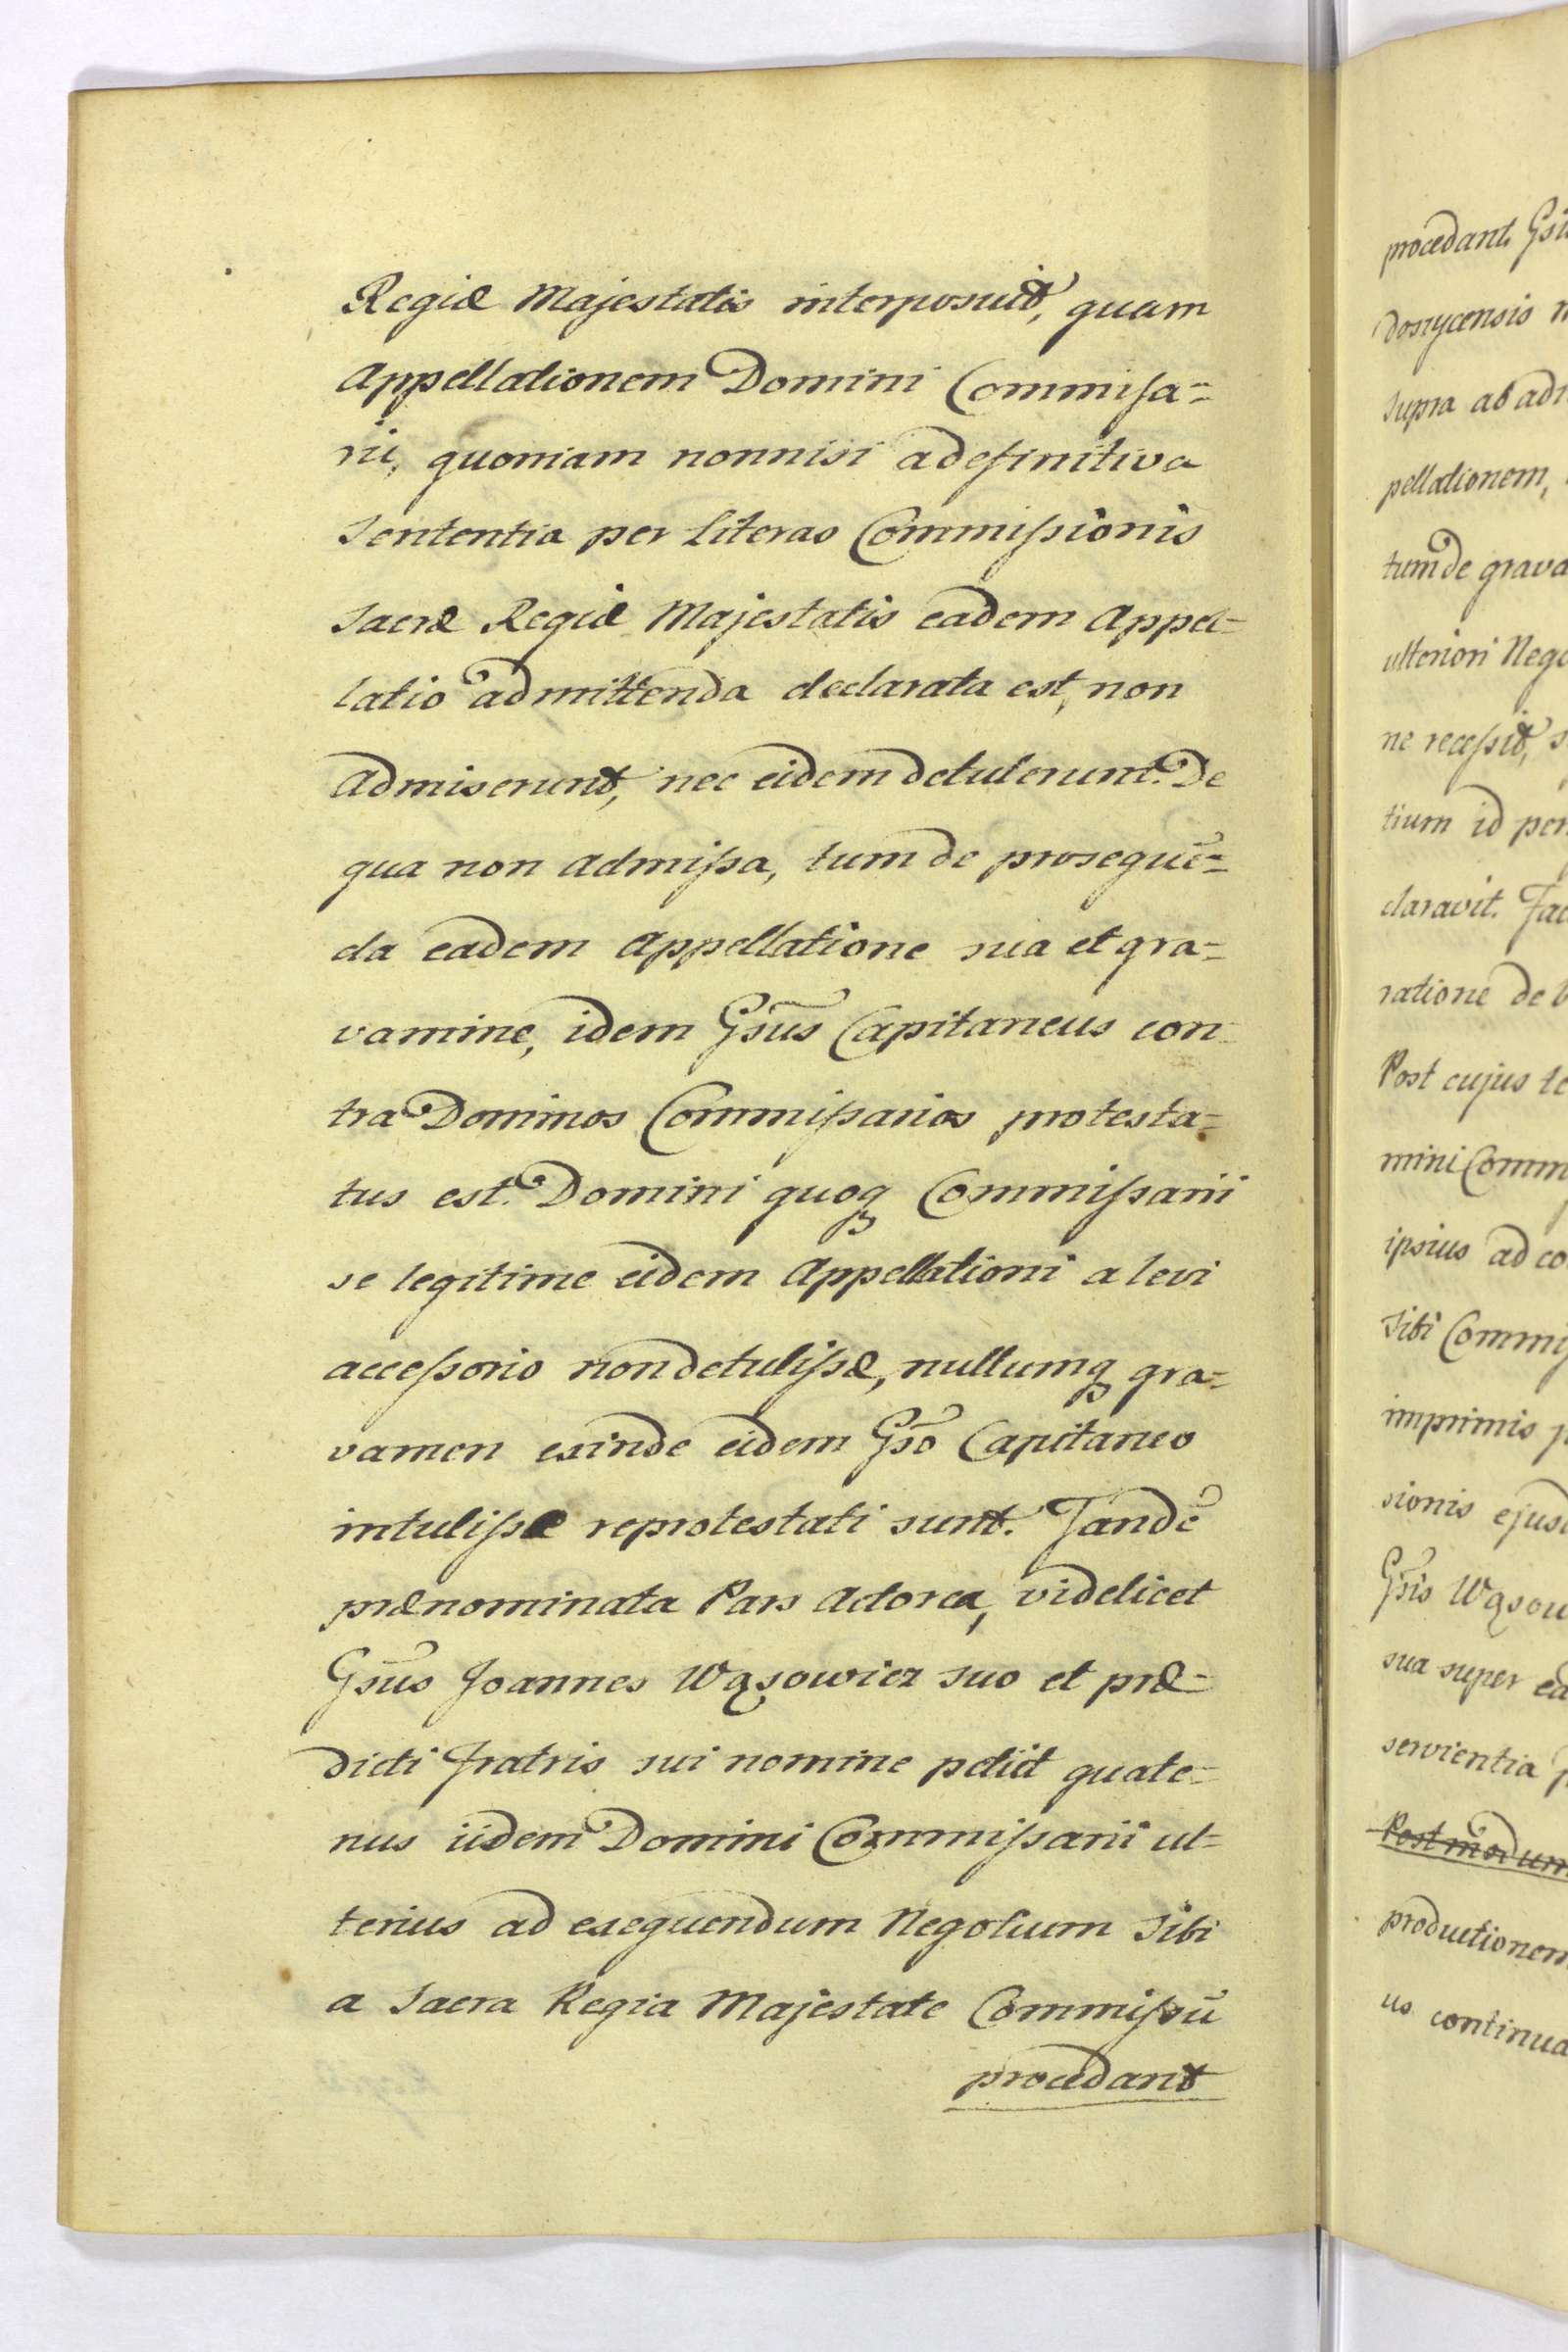 Regiæ Majestatis interposuit, quam
Appellationem Domini Commissa=
rii, quoniam nonnisi a definitiva
Sententia per Literas Commissionis
Sacræ Regiæ Majestatis eadem Appel=
latio admittenda declarata est, non
admiserunt, nec eidem detulerunt. De
qua non admissa, tum de prosequē=
da eadem Appellatione sua et gra=
vamine, idem Gsus Capitaneus con=
tra Dominos Commissarios protesta=
tus est. Domini quoq Commissarii
se legitime eidem Appellationi a levi
accessorio non detulisse, nullumq gra=
vamen exinde eidem Gso Capitaneo
intulisse reprotestati sunt. Tandē
prænominata Pars Actorea, videlicet
Gsus Joannes Wąsowicz suo et præ=
dicti Fratris sui nomine petiit quate=
nus iidem Domini Commissarii ul=
terius ad exequendum Negotium Sibi
a Sacra Regia Majestate Commissū
procedant
procedant Gsu
supra ab adm
pellationem,
tum de grava
ulteriori Nego
ne recessit, s
tium id per
claravit. Fac
ratione de
Post cujus
mini Comm
ipsius ad co
Sibi Commis
imprimis p
sionis ejusd
Gsis Wąsow
sua super ea
servientia p
Postmodum
productionem
us continua